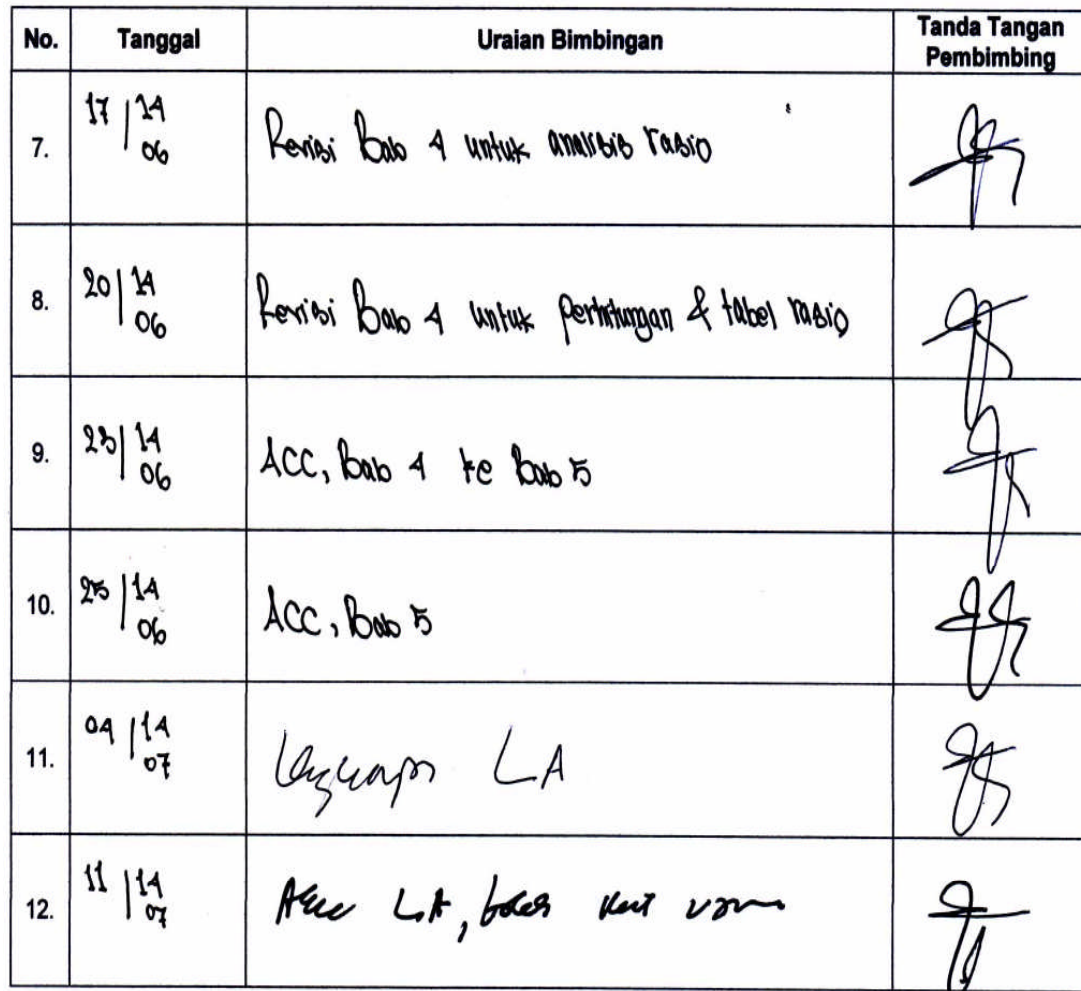 No. Tanggal Uraian Bimbingan Tanda Tangan Pembimbing
7. 17 | 14 06 Revisi Bab 4 untuk analisis rasio
8. 20 | 14 06 Revisi Bab 4 untuk perhitungan & tabel rasio
9. 23 | 14 06 ACC, Bab 4 ke Bab 5
10. 25 | 14 06 ACC, Bab 5
11. 04 | 14 07 Lengkapi LA
12. 11 | 14 07 LA,